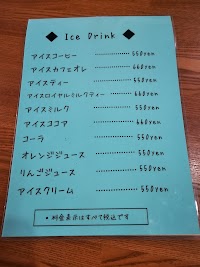 ◆ Ice Drink ◆
アイスコーヒー ………… 550yen
アイスカフェオレ ………… 660yen
アイスティー ………… 550yen
アイスロイヤルミルクティー ………… 660yen
アイスミルク ………… 550yen
アイスココア ………… 660yen
コーラ ………… 550yen
オレンジジュース ………… 550yen
りんごジュース ………… 550yen
アイスクリーム ………… 550yen
・料金表示はすべて税込です